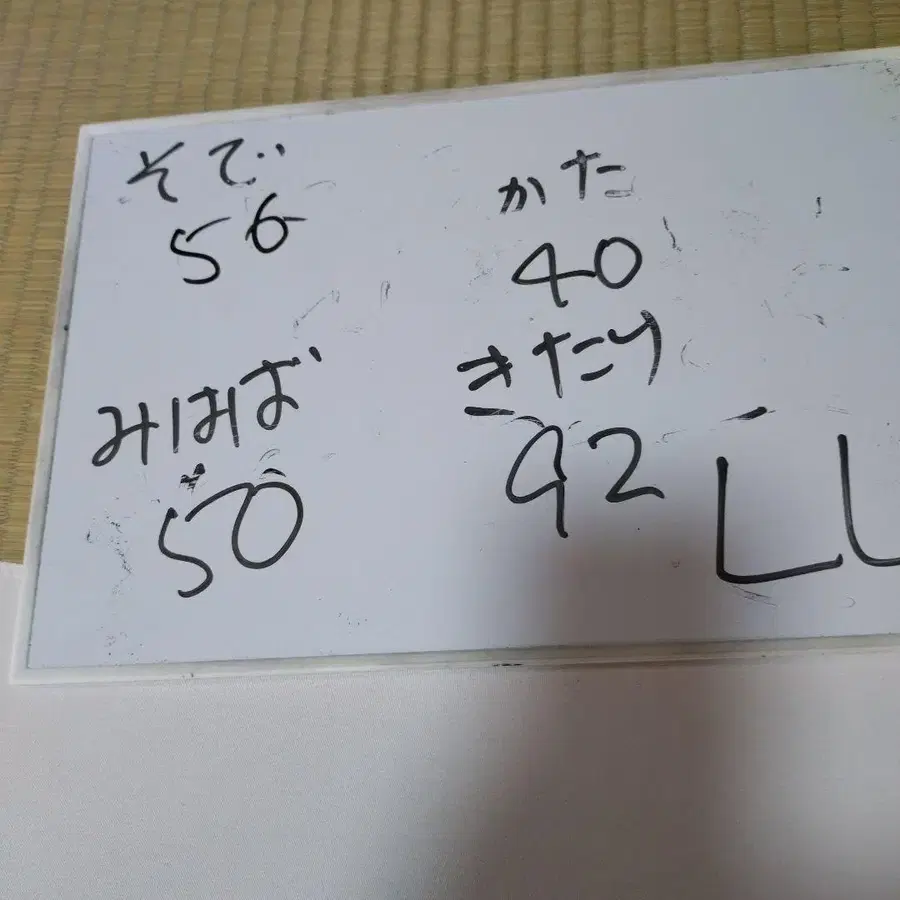 そで
56
かた
40
みはば
50
きたり
92
LL